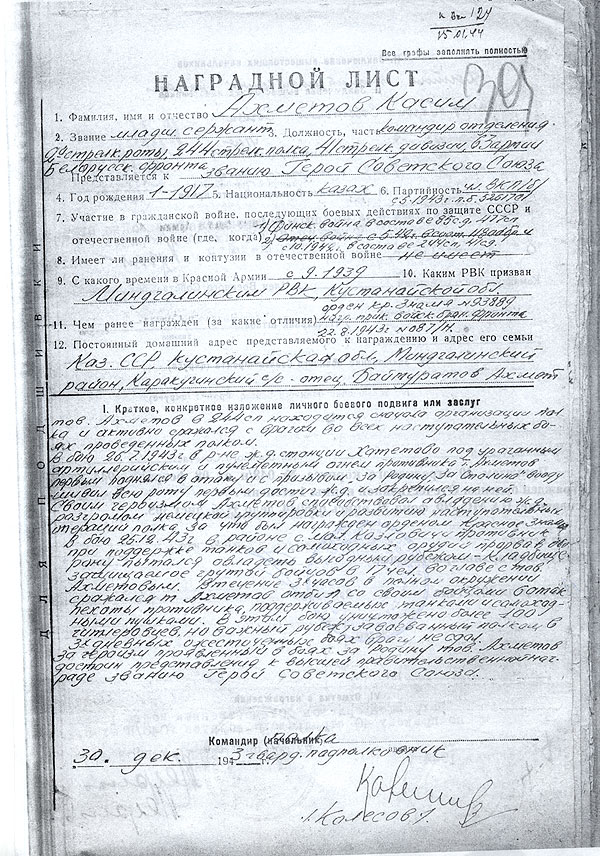 15.01.44
Все графы заполнять полностью
НАГРАДНОЙ ЛИСТ
1. Фамилия, имя и отчество Ахметов Касим
2. Звание младш. сержант 3. Должность, часть командир отделения
стрелк. роты, 244 стрелк. полка, 41 стрелк. дивизии,
Белорусск. фронта
Представляется к званию Герой Советского Союза
4. Год рождения 1-1917 5. Национальность казах 6. Партийность чл. ВКП/б/
с 5.1943г.
7. Участие в гражданской войне, последующих боевых действиях по защите СССР и
отечественной войне (где, когда)
8. Имеет ли ранения и контузии в отечественной войне не имеет
9. С какого времени в Красной Армии с 9.1939 10. Каким РВК призван
Миндгалинским РВК, Кустанайской обл.
орден кр. Знамя №93889
11. Чем ранее награжден (за какие отличия) нагр. прик. войск. Брян. фронта
22.8.1943г. №087/н.
12. Постоянный домашний адрес представляемого к награждению и адрес его семьи
Каз. ССР, Кустанайская обл, Миндгалинский
район, Каракучинский с/с - отец, Баймуратов Ахмет
ДЛЯ ПОДШИВКИ
I. Краткое, конкретное изложение личного боевого подвига или заслуг
тов. Ахметов в 244 сп находится с начала организации пол-
ка и активно сражался с врагом во всех наступательных бо-
ях проведенных полком.
В бою 26.7.1943г. в р-не ж.д. станции Хатетово под ураганным
артиллерийским и пулеметным огнем противника - Ахметов
первым поднялся в атаку и с призывом "За Родину, За Сталина"
всю роту первым достиг ж.д. и закрепился на ней.
Своим героизмом Ахметов способствовал овладению ж.д.
разгромом немецкой группировки и развитию наступательных
операций полка. За что был награжден орденом Красное Знамя
В бою 25.12.43г. в районе с-мал. Козловичи противник
при поддержке танков и самоходных орудий прорвав обо-
рону пытался овладеть выгодным рубежом - кладбище
защищаемое группой бойцов в 17 чел. во главе с тов.
Ахметовым. В течение 3х часов в полном окружении
сражался т. Ахметов отбил со своим бойцами 6 атак
пехоты противника, поддерживаемых танками и самоход-
ными пушками. В этом бою уничтожено более 100
гитлеровцев. Но важный рубеж завоеванный полком в
3х дневных ожесточенных боях врагу не сдал.
За героизм проявленный в боях за Родину тов. Ахметов
достоин представления к высшей правительственной наг-
раде званию Герой Советского Союза.
Командир (начальник) полка
30. дек. 1943 г. гвард. подполковник
/Колесов/.